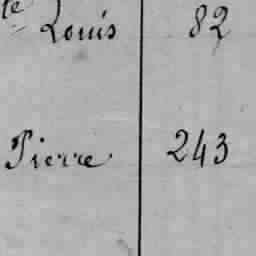 te Louis 82
Pierre 243